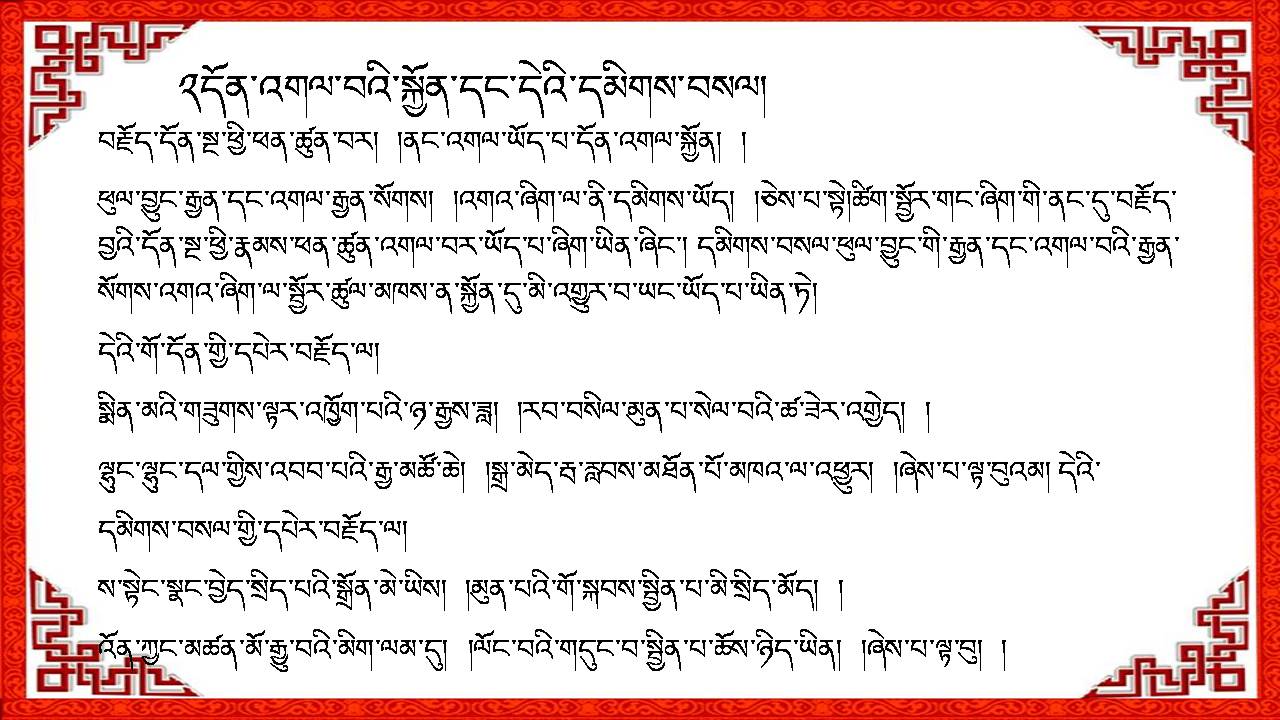 ༢དོན་འགལ་བའི་སྐྱོན་དང་དེའི་དམིགས་བསལ།
བརྗོད་དོན་སྔ་ཕྱི་ཕན་ཚུན་བར། །ནང་འགལ་ཡོད་པ་དོན་འགལ་སྐྱོན། །
ཕུལ་བྱུང་རྒྱན་དང་འགལ་རྒྱན་སོགས། །འགའ་ཞིག་ལ་ནི་དམིགས་ཡོད། །ཅེས་པ་སྟེ།ཚིག་སྦྱོར་གང་ཞིག་གི་ནང་དུ་བརྗོད་
བྱའི་དོན་སྔ་ཕྱི་རྣམས་ཕན་ཚུན་འགལ་བར་ཡོད་པ་ཞིག་ཡིན་ཞིང་། དམིགས་བསལ་ཕུལ་བྱུང་གི་རྒྱན་དང་འགལ་བའི་རྒྱན་
སོགས་འགའ་ཞིག་ལ་སྦྱོར་ཚུལ་མཁས་ན་སྐྱོན་དུ་མི་འགྱུར་བ་ཡང་ཡོད་པ་ཡིན་ཏེ།
དེའི་གོ་དོན་གྱི་དཔེར་བརྗོད་ལ།
སྨིན་མའི་གཟུགས་ལྟར་འཁྱོག་པའི་ཉ་རྒྱས་ཟླ། །རབ་བསིལ་མུན་པ་སེལ་བའི་ཚ་ཟེར་འགྱེད། །
ལྷུང་ལྷུང་དལ་གྱིས་འབབ་པའི་རྒྱ་མཚོ་ཆེ། །སྒྲ་མེད་རྦ་རླབས་མཐོན་པོ་མཁའ་ལ་འཕྱུར། །ཞེས་པ་ལྟ་བུའམ། དེའི་
དམིགས་བསལ་གྱི་དཔེར་བརྗོད་ལ།
ས་སྟེང་སྣང་བྱེད་སྲིད་པའི་སྒྲོན་མེ་ཡིས། །མུན་པའི་གོ་སྐབས་སྦྱིན་པ་མི་སྲིད་མོད། །
འོན་ཀྱང་མཚན་མོ་རྒྱུ་བའི་མིག་ལམ་དུ། །ལོང་བའི་གདུང་བ་སྦྱིན་པ་ཆོས་ཉིད་ཡིན། །ཞེས་པ་ལྟ་བུ། །